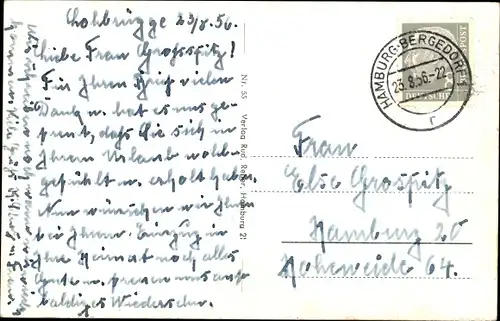 Lohbrügge 23/8.56.
Liebe Frau Grosspitz!
Für Ihren Brief vielen
Dank u. hat es uns ge-
freut, dass Sie sich in
Ihrem Urlaub wohl-
gefühlt u. erholt haben.
Nun wünschen wir Ihnen
bei Ihrem Einzug in
Ihre Heimat noch alles
Gute u. freuen uns auf
baldiges Wiedersehn.
Nr. 55 Verlag Rud. Reher, Hamburg 21
HAMBURG-BERGEDORF 1
23.8.56.-22
r
DEUTSCHE
POST
Frau
Else Grospitz
Hamburg 20
Haheweide 64.